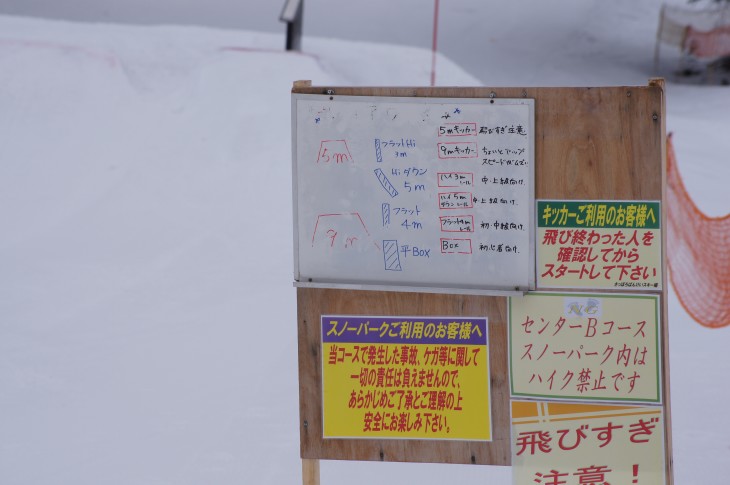 5m
9m
フラットHi
3m
Hiダウン
5m
フラット
4m
平Box
5mキッカー 飛びすぎ注意
9mキッカー ちょいとアップ
ハイ3m
レール
中・上級向け
ハイ5m
ダウンレール
中上級向け
フラット4m
レール
初・中級向け
Box 初心者向け
キッカーご利用のお客様へ
飛び終わった人を
確認してから
スタートして下さい
スノーパークご利用のお客様へ
当コースで発生した事故、ケガ等に関して
一切の責任は負えませんので、
あらかじめご了承とご理解の上
安全にお楽しみ下さい。
センターBコース
スノーパーク内は
ハイク禁止です
飛びすぎ
注意!